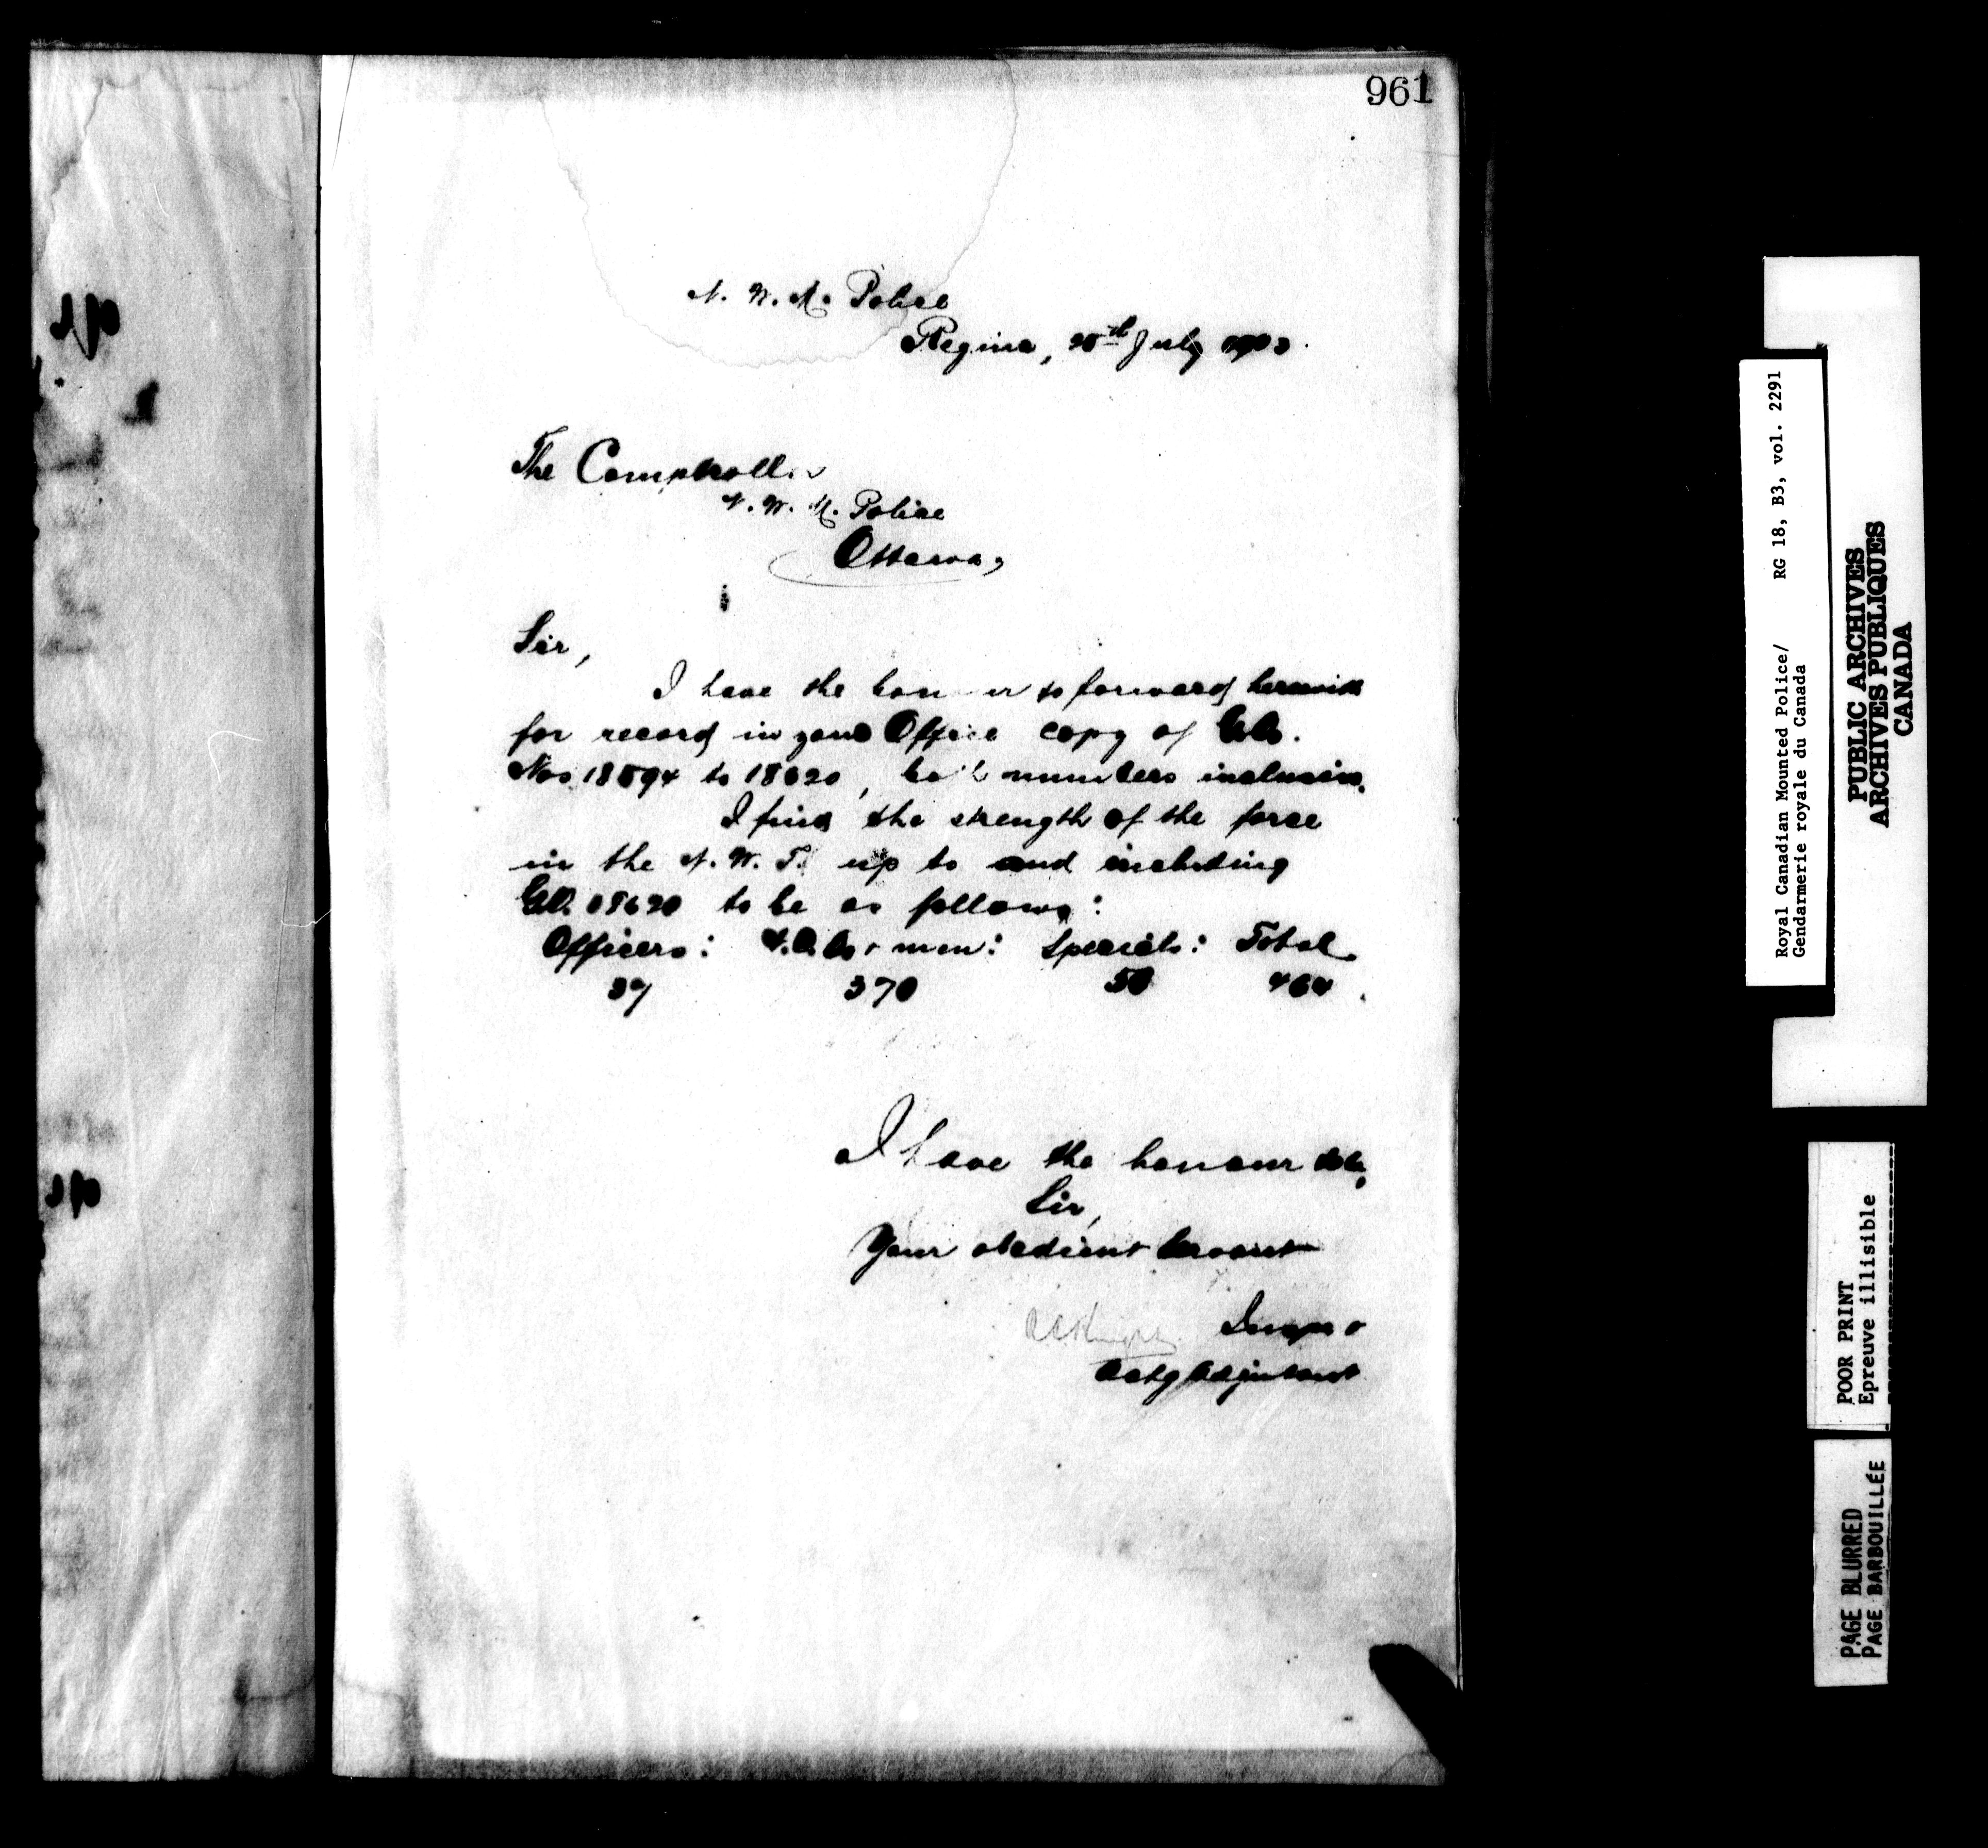 961
N. W. M. Police
Regina, July
The Comptroller
N. W. M. Police
Ottawa,
Sir,
I have the honour to forward herewith
for record in your Office copy of G.Os.
Nos 18594 to 18620, both numbers inclusive.
I find the strength of the force
in the N. W. T. up to and including
G.O. 18620 to be as follows:
Officers: N.C.Os + men: Specials: Total
370 464.
I have the honour to be,
Sir,
Your obedient Servant
Inspr
Actg Adjutant
Royal Canadian Mounted Police/ RG 18, B3, vol. 2291
Gendarmerie royale du Canada
PUBLIC ARCHIVES
ARCHIVES PUBLIQUES
CANADA
POOR PRINT
Epreuve illisible
PAGE BLURRED
PAGE BARBOUILLÉE